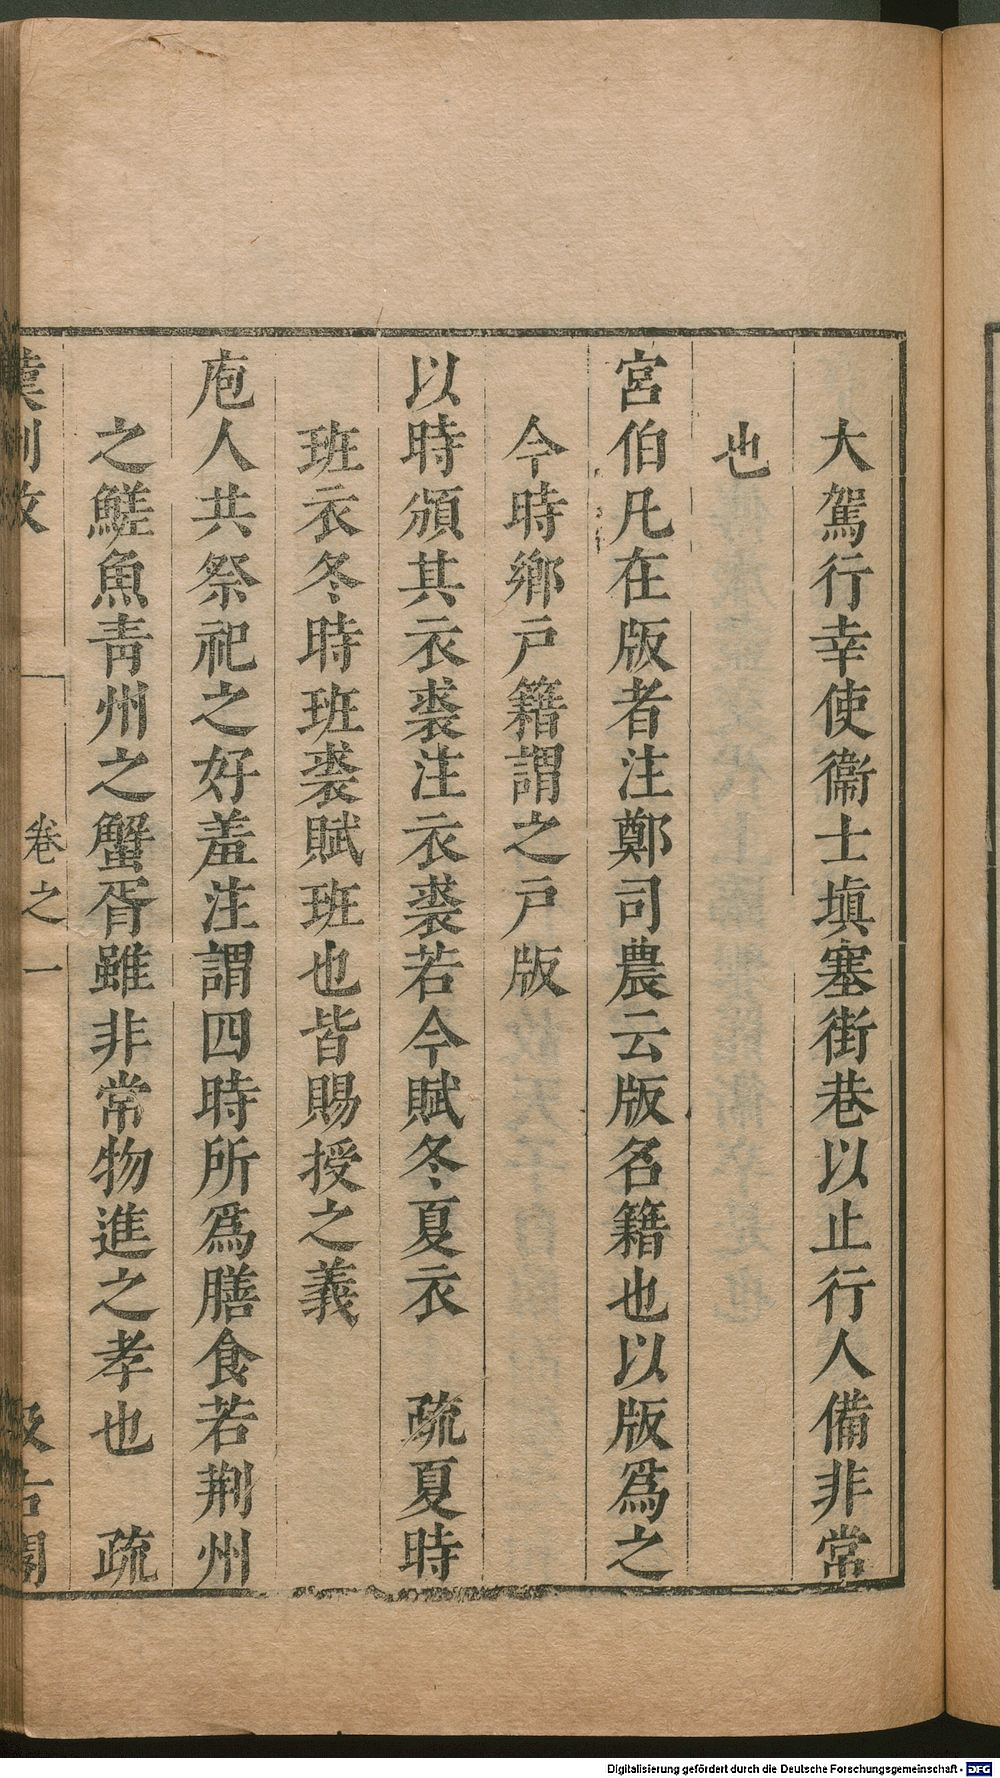 大駕行幸使衞士塡塞街巷以止行人備非常
也
宮伯凡在版者注鄭司農云版名籍也以版爲之
今時鄉戸籍謂之戸版
以時頒其衣裘注衣裘若今賦冬夏衣　疏夏時
班衣冬時班裘賦班也皆賜授之義
庖人共祭祀之好羞注謂四時所爲膳食若荆州
之鱃魚靑州之蟹胥雖非常物進之孝也　疏
漢制攷　卷之一　汲古閣
Digitalisierung gefördert durch die Deutsche Forschungsgemeinschaft - DFG